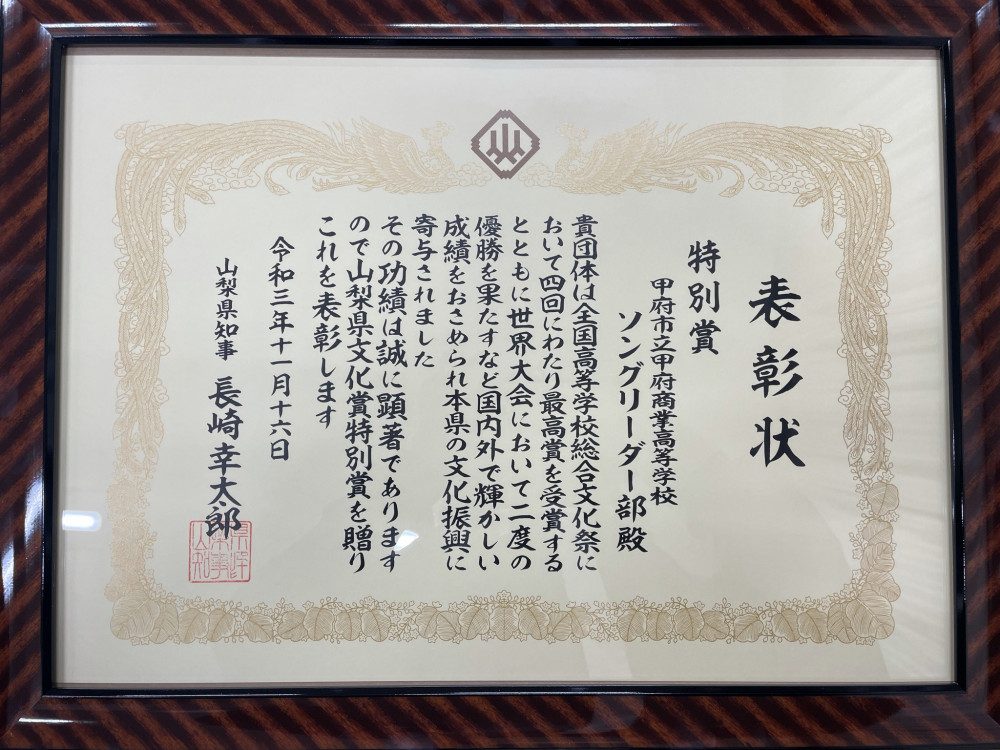 表彰状
特別賞
甲府市立甲府商業高等学校
ソングリーダー部殿
貴団体は全国高等学校総合文化祭に
おいて四回にわたり最高賞を受賞する
とともに世界大会において二度の
優勝を果たすなど国内外で輝かしい
成績をおさめられ本県の文化振興に
寄与されました
その功績は誠に顕著であります
ので山梨県文化賞特別賞を贈り
これを表彰します
令和三年十一月十六日
山梨県知事 長崎幸太郎